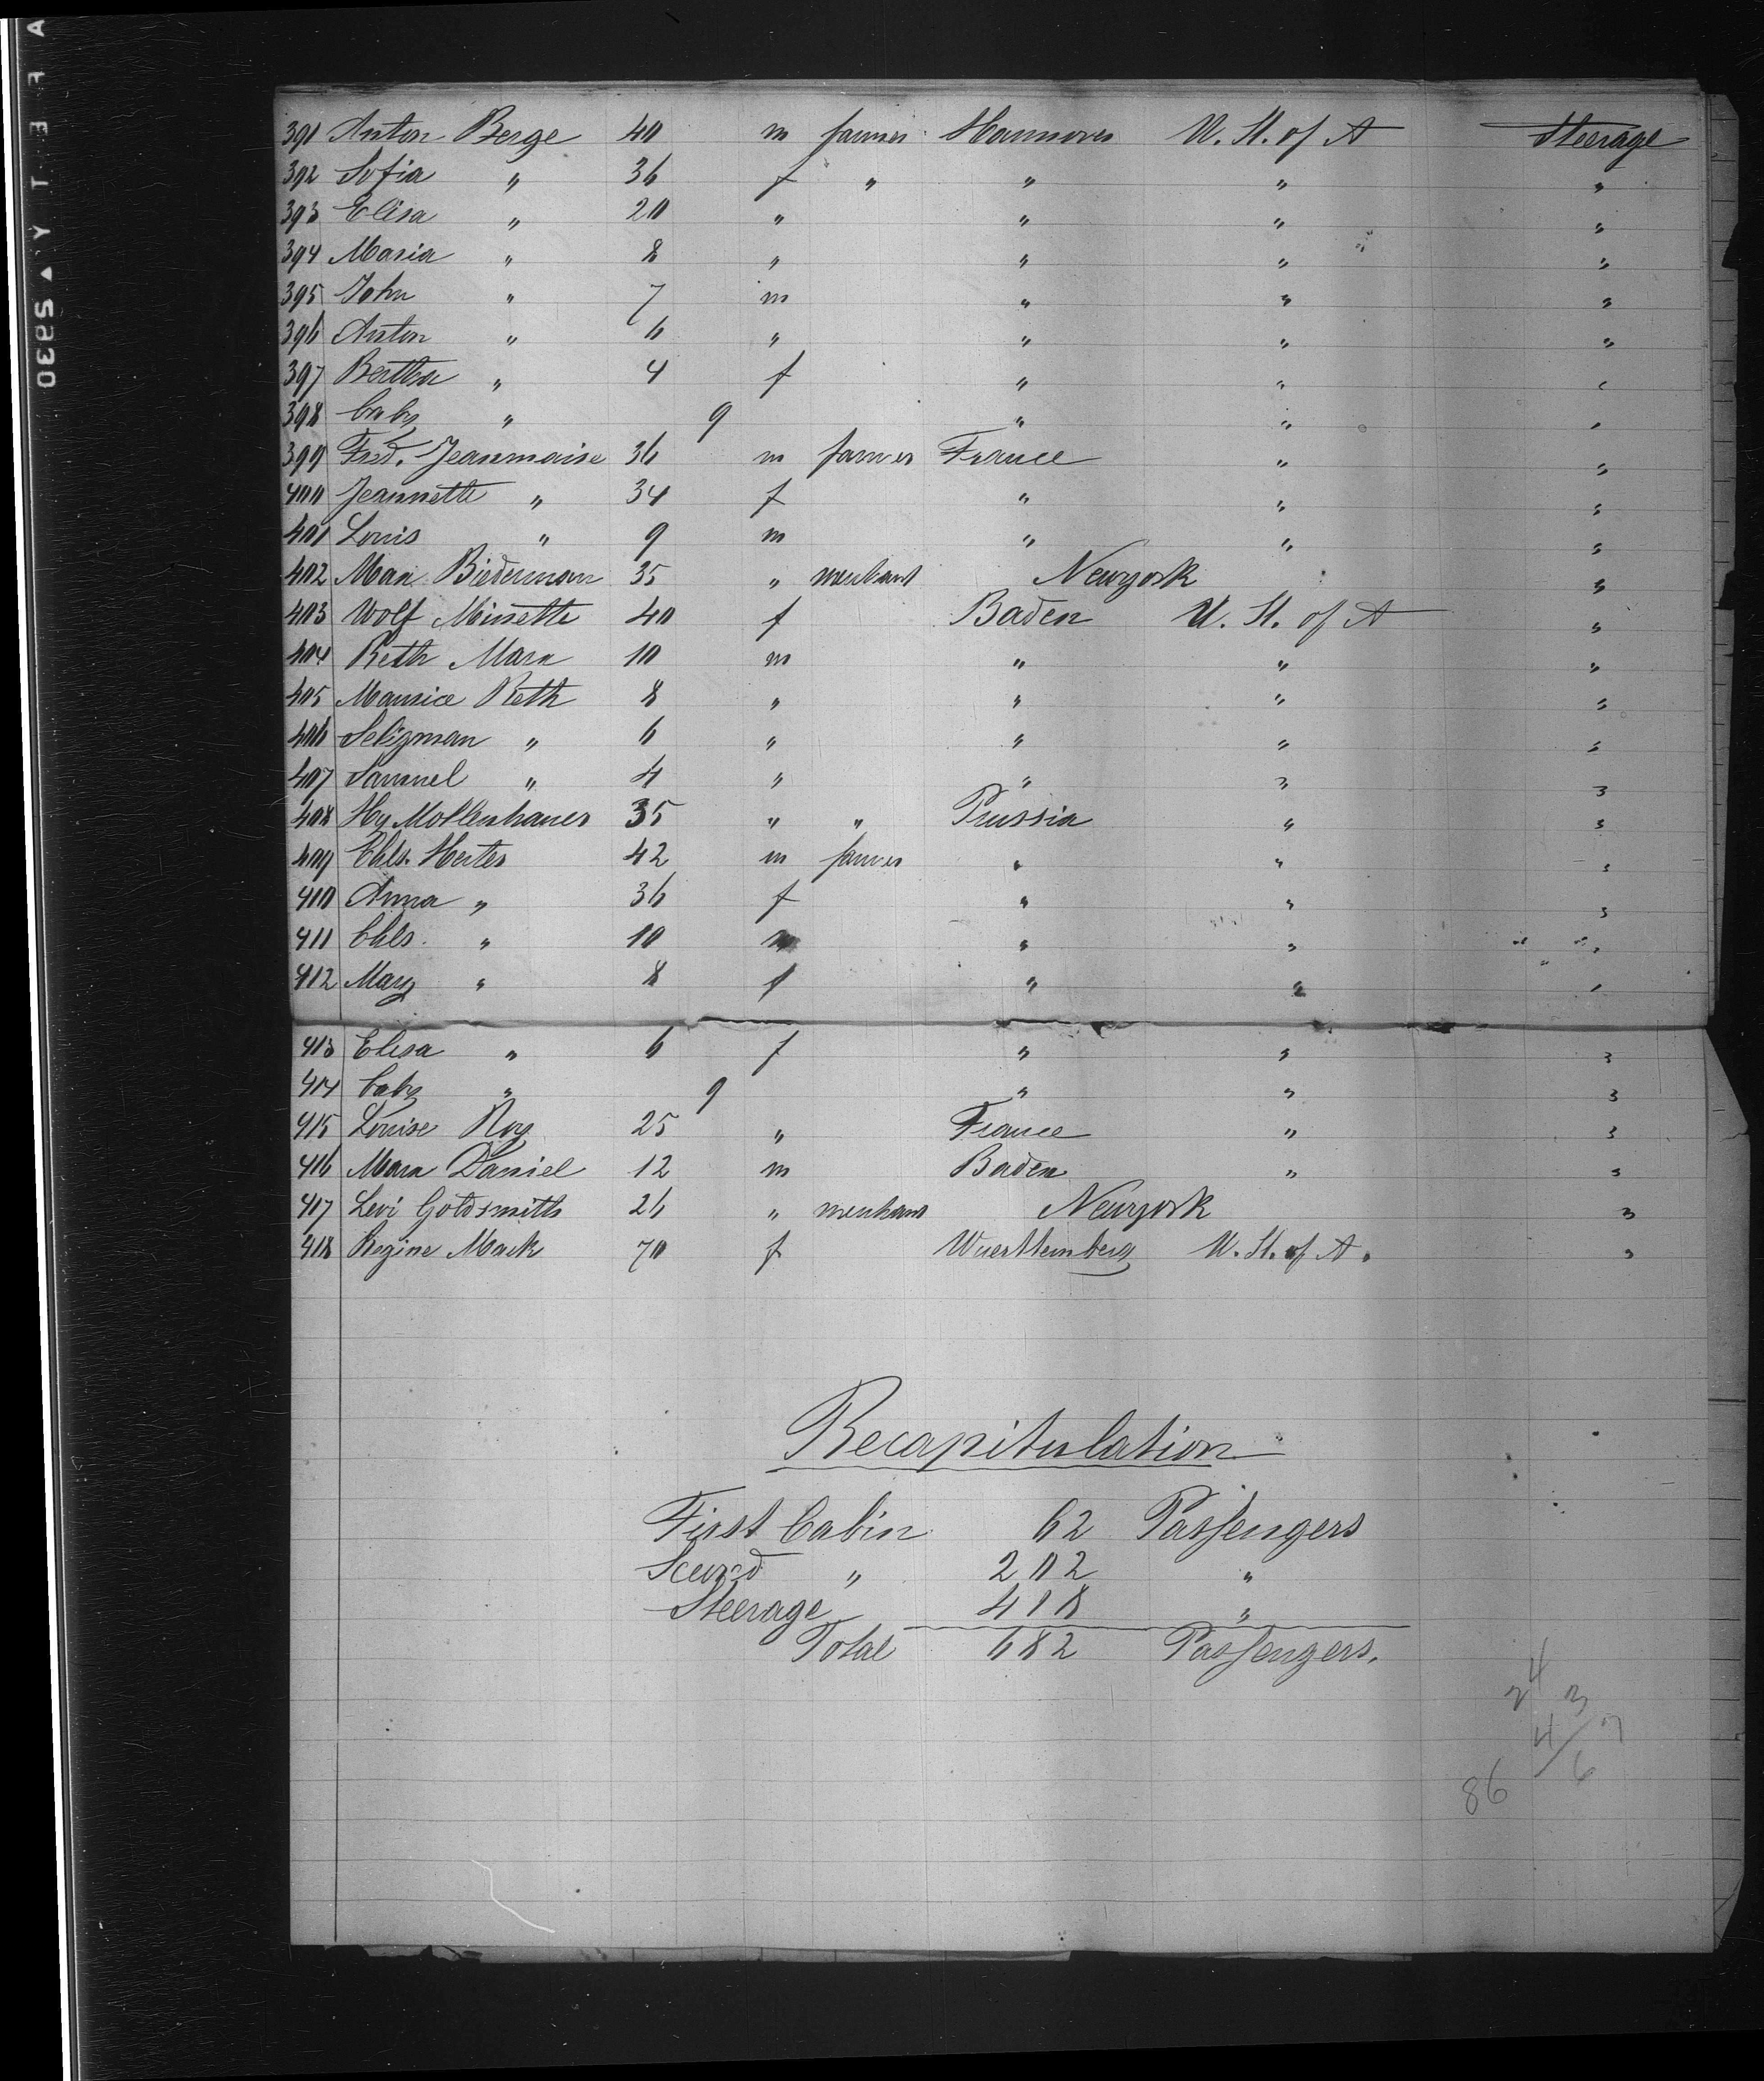 391 Anton Berge 40 m farmer Hannover U. St. of A Steerage
392 Sofia " 36 f " " " "
393 Elisa " 20 " " " "
394 Maria " 8 " " " "
395 John " 7 m " " "
396 Anton " 6 " " " "
397 Bertha " 4 f " " "
398 baby " 9 " " "
399 Fred. Jeanmaire 36 m farmer France " "
400 Jeannette " 34 f " " "
401 Louis " 9 m " " "
402 Max Biederman 35 " merchant Newyork "
403 Wolf Minette 40 f Baden U. St. of A "
404 Reth Marx 10 m " " "
405 Maurice Reth 8 " " " "
406 Seligman " 6 " " " "
407 Samuel " 4 " " " "
408 Hy Mollenhauer 35 " " Prussia " "
409 Chls. Herter 42 m farmer " " "
410 Anna " 36 f " " "
411 Chls. " 10 m " " "
412 Mary " 8 f " " "
413 Elisa " 6 f " " "
414 baby " 9 " " "
415 Louise Roy 25 " France " "
416 Marx Daniel 12 m Baden " "
417 Levi Goldsmith 26 " merchant Newyork "
418 Regine Mack 70 f Wuerttemberg U. St. of A. "
Recapitulation
First Cabin 62 Passengers
Second " 202 "
Steerage 418 "
Total 682 Passengers.
24 3
4/7
6
86